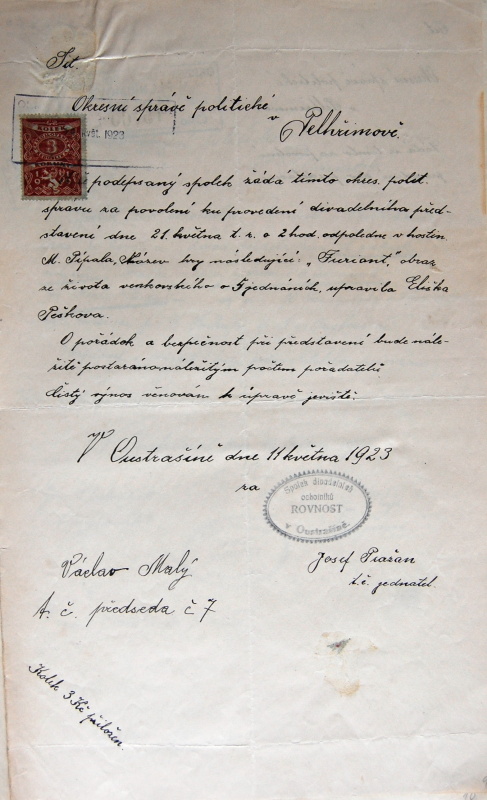 Okresní správě politické
v Pelhřimově.
květ. 1923
KOLEK
3
podepsaný spolek žádá tímto okres. polit.
správu za povolení ku provedení divadelního před-
stavení dne 21. května t. r. o 2 hod. odpoledne v hostin.
M. Pípala, Název hry následující: „Furiant“, obraz
ze života venkovského o 5 jednáních, upravila Eliška
Pešková.
O pořádek a bezpečnost při představení bude nále-
žitě postaráno náležitým počtem pořadatelů
Čistý výnos věnován k úpravě jeviště.
V Oustrašíně dne 11 května 1923
za
Spolek divadelních
ochotníků
ROVNOST
v Oustrašíně.
Josef
t. č. jednatel
Václav Malý
t. č. předseda č 7
Kolek 3 Kč přiložen.